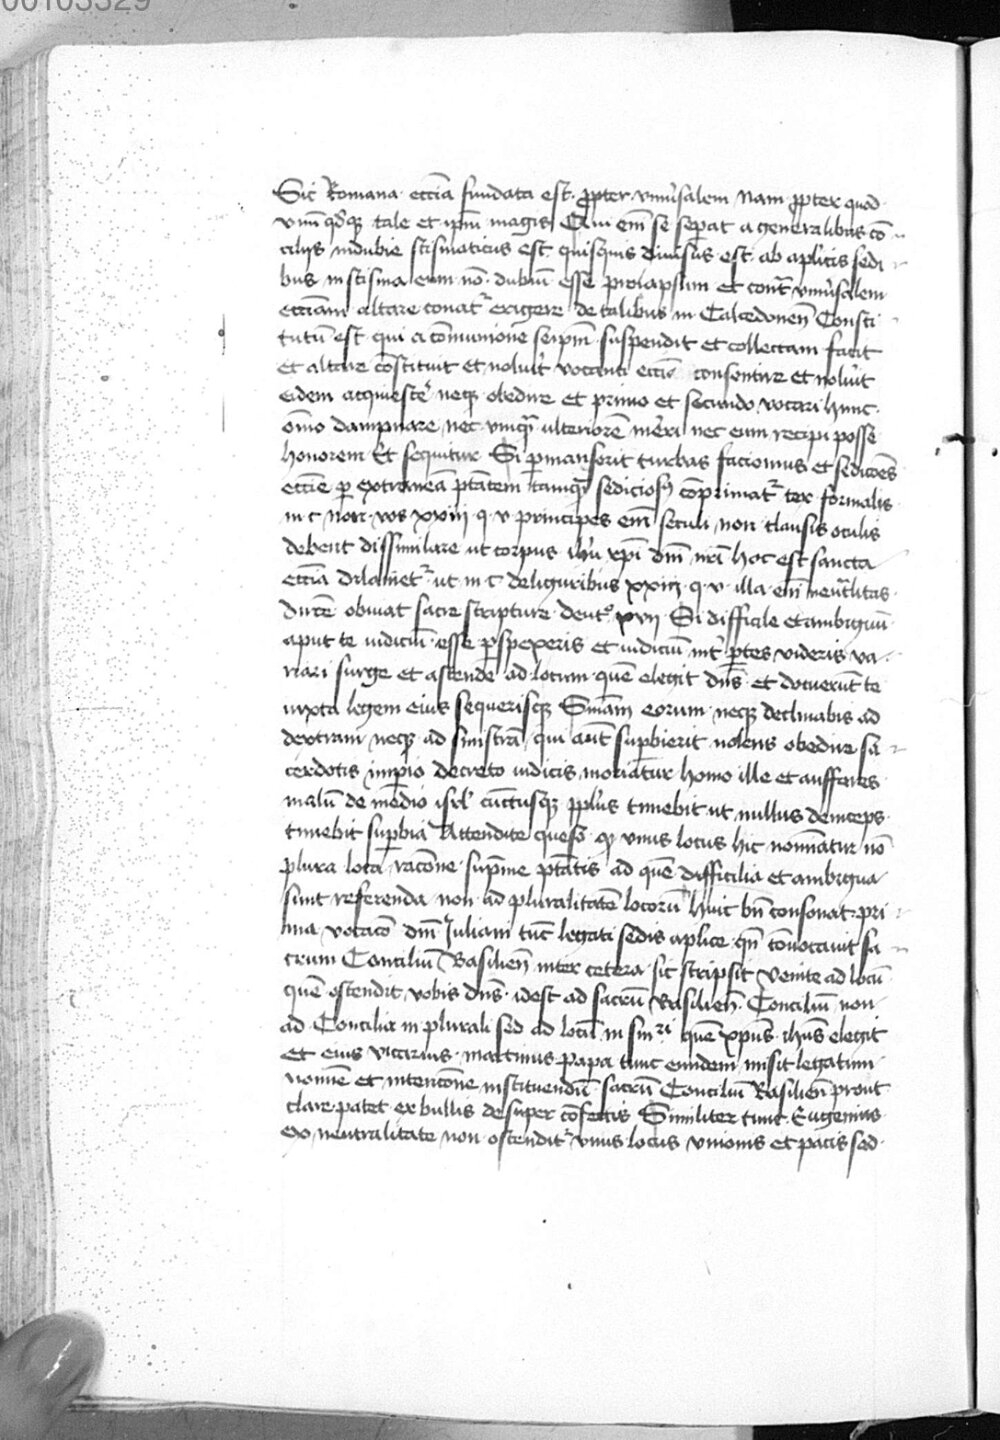 00103329
Sic Romana eccia fundata est ppter vniusalem Nam ppter quod
vnuqdqz tale et ipm magis Qui em se separat a generalibus co
cilijs indubie scismaticus est quisquis diuisus est ab aplicis sedi
bus in scisma eum no dubiu esse prolapsum et cont vniusalem
ecciam altare conat erigere de talibus in Calcedonen Consti
tutu est qui a comunione seipm suspendit et collectam facit
et altare constituit et noluit vocanti eccie consentire et noluit
eidem acquiesce neqz obedire et primo et secundo vocari hunc
oino dampnare nec vnqua vlteriore meri nec eum recipi posse
honorem Et sequitur Si pmanserit turbas faciomus et sedicoes
eccie p extranea ptatem tamqua sediciosu coprimat tex formalis
in c non vos xxiij q v principes em seculi non clausis oculis
debent dissimilare ut corpus ihu xpi dni nri hoc est sancta
eccia dilaniet ut in c de liguribus xxiij q v illa em neutlitas
dirce obuiat sacre scripture deutº xvij Si difficile et ambiguu
aput te iudiciu esse pspexeris et iudiciu int ptes videris va
riari surge et ascende ad locum que elegit dns et docuerut te
iuxta legem eius sequerisqz Smam eorum neqz declinabis ad
dextram neqz ad sinistra qui aut supbierit nolens obedire sa
cerdotis impio decreto iudicis moriatur homo ille et aufferes
malu de medio isrl cunctusqz pplus timebit ut nullus deinceps
timebit supbia Attendite queso qz vnus locus hic nominatur no
plura loca racone supme ptatis ad que difficilia et ambigua
sunt referenda non ad pluralitate locoru Huic bn consonat pri
ma vocaco dni Juliani tuc legati sedis aplice qn conuocauit sa
crum Conciliu Basilien inter cetera sic scripsit Venite ad locu
que ostendit vobis dns idest ad sacru Basilien Conciliu non
ad Concilia in plurali sed ad locu in sinri que xpus ihus elegit
Et eius vicarius martinus papa tunc eundem misit legatum
nomie et intencone instituendi sacru Conciliu Basilien prout
clare patet ex bullis desuper confectis Similiter tunc Eugenius
ex neutralitate non ostendit vnus locus vnionis et pacis sed